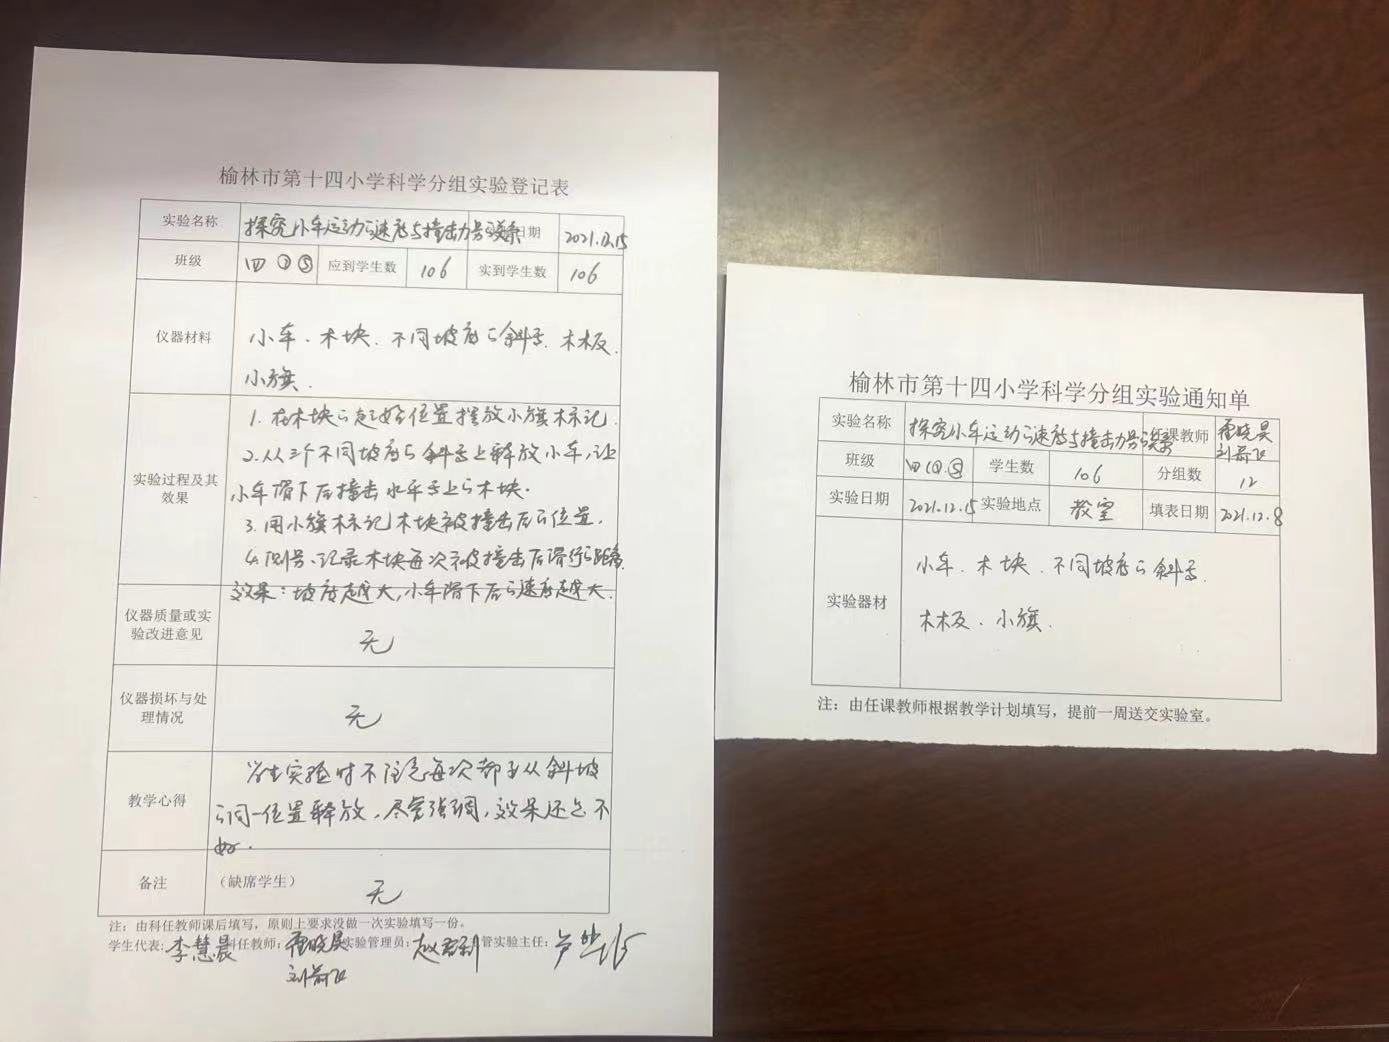 榆林市第十四小学科学分组实验登记表
实验名称 探究小车运动的速度与撞击力的关系 日期 2021.12.15
班级 四 ⑤ 应到学生数 106 实到学生数 106
仪器材料
小车、木块、不同坡度的斜面、木板、
小旗.
实验过程及其
效果
1. 在木块的起始位置摆放小旗标记.
2. 从三个不同坡度的斜面上释放小车,让
小车滑下后撞击水平面上的木块.
3. 用小旗标记木块被撞击后的位置.
4. 测量、记录木块每次被撞击后滑行的距离.
效果:坡度越大,小车滑下后的速度越大.
仪器质量或实
验改进意见
无
仪器损坏与处
理情况
无
教学心得
学生实验时不注意每次都要从斜坡
的同一位置释放,尽管强调,效果还是不
好.
备注 (缺席学生) 无
注:由科任教师课后填写,原则上要求没做一次实验填写一份。
学生代表: 李慧晨 科任教师: 实验管理员: 管实验主任:
榆林市第十四小学科学分组实验通知单
实验名称 探究小车运动的速度与撞击力的关系 任课教师
班级 四 ⑤ 学生数 106 分组数 12
实验日期 2021.12.15 实验地点 教室 填表日期 2021.12.8
实验器材
小车、木块、不同坡度的斜面、
木板、小旗.
注:由任课教师根据教学计划填写,提前一周送交实验室。